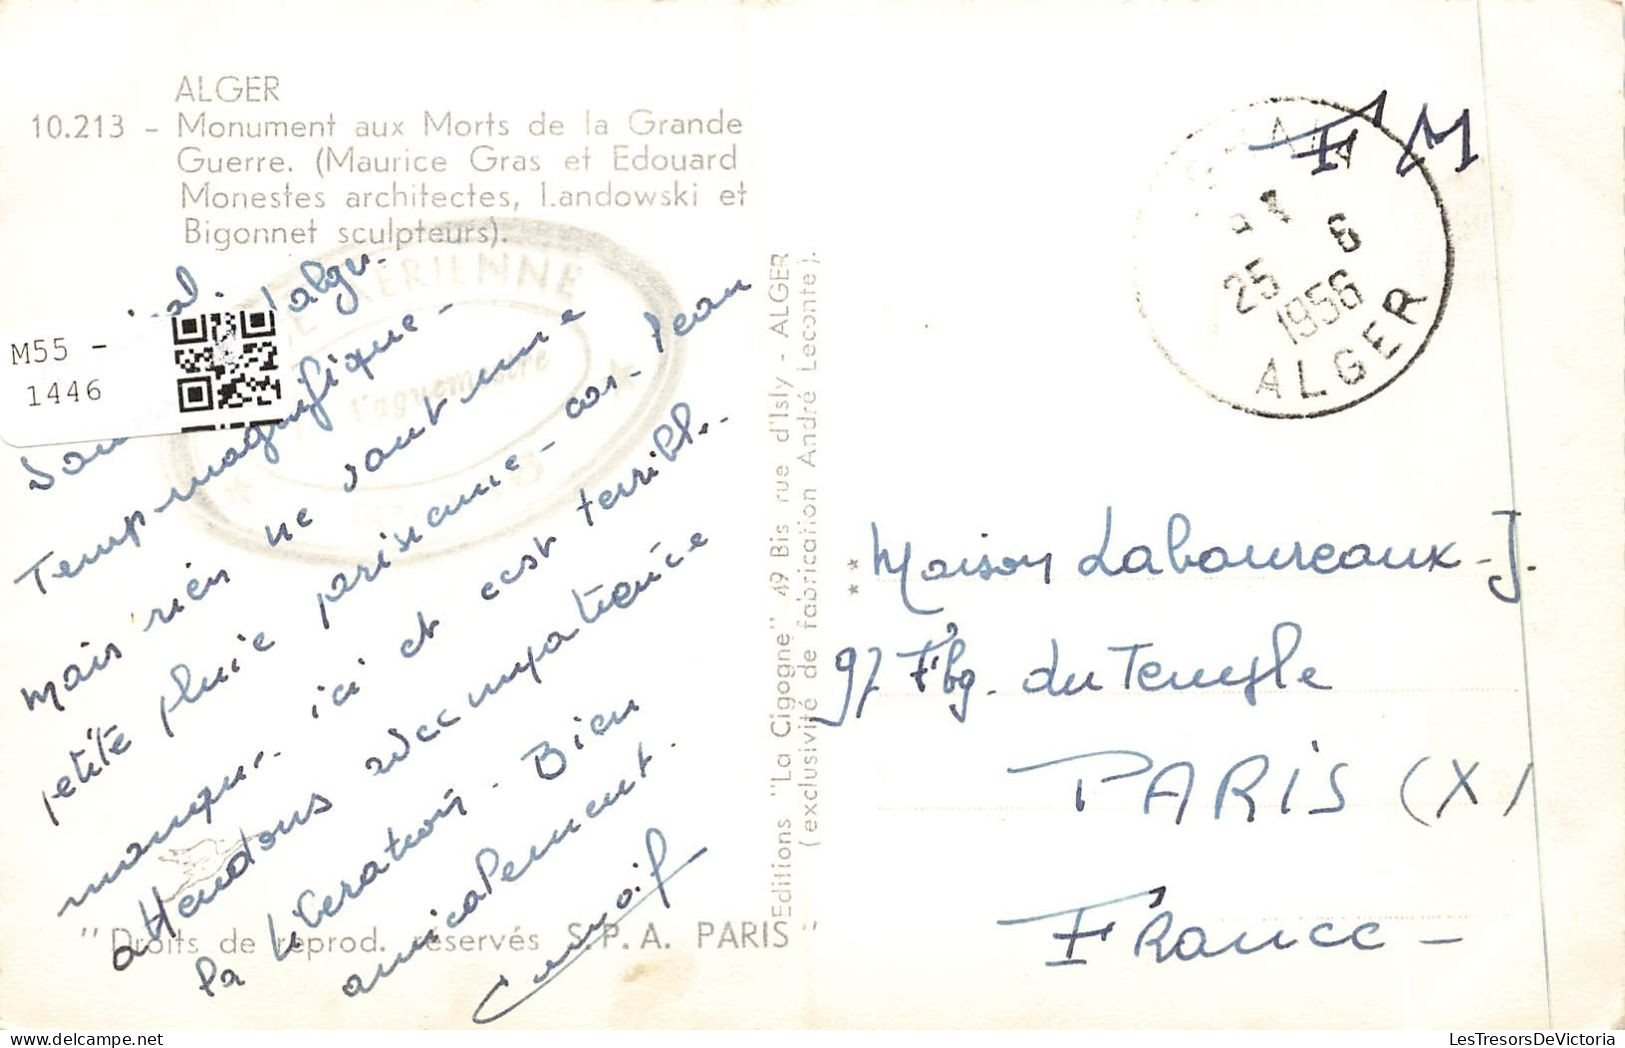 ALGER
10.213 - Monument aux Morts de la Grande
Guerre. (Maurice Gras et Edouard
Monestes architectes, Landowski et
Bigonnet sculpteurs).
M55 -
1446
Temps magnifique -
mais rien ne vaut une
petite pluie parisienne - car l'eau
manque ici et c'est terrible.
attendons avec impatience
la libération. Bien
amicalement.
AERIENNE
Vaguemestre
Editions "La Cigogne" 49 Bis rue d'Isly - ALGER
(exclusivité de fabrication André Leconte).
"Droits de reprod. réservés S.P.A. PARIS"
F M
25 6
1956
ALGER
** Maison Laboureaux - J.
97 Fbg. du Temple
PARIS (X)
France -
LesTresorsDeVictoria